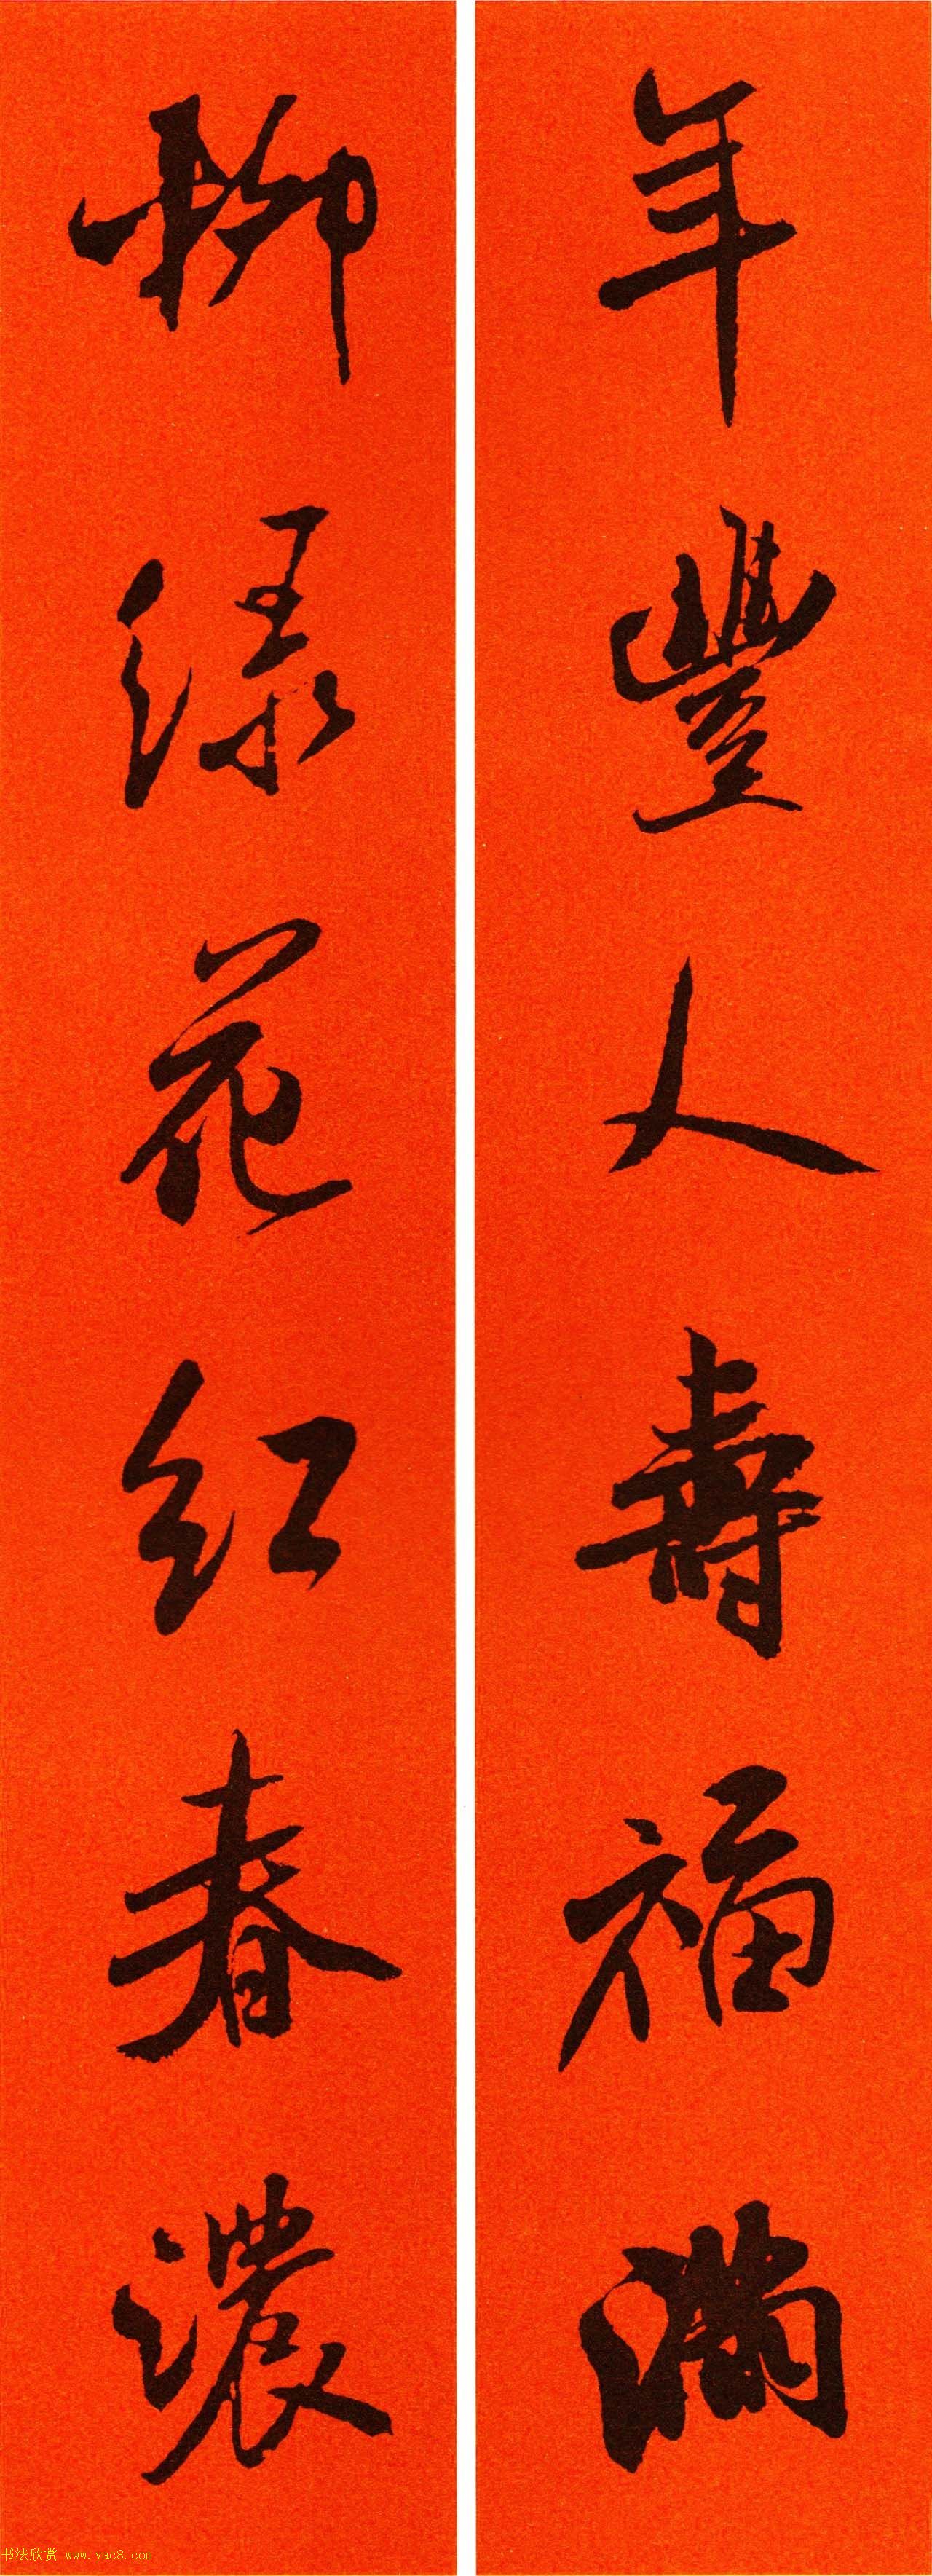 年豐人壽福滿
柳绿花红春濃
书法欣赏 www.yac8.com